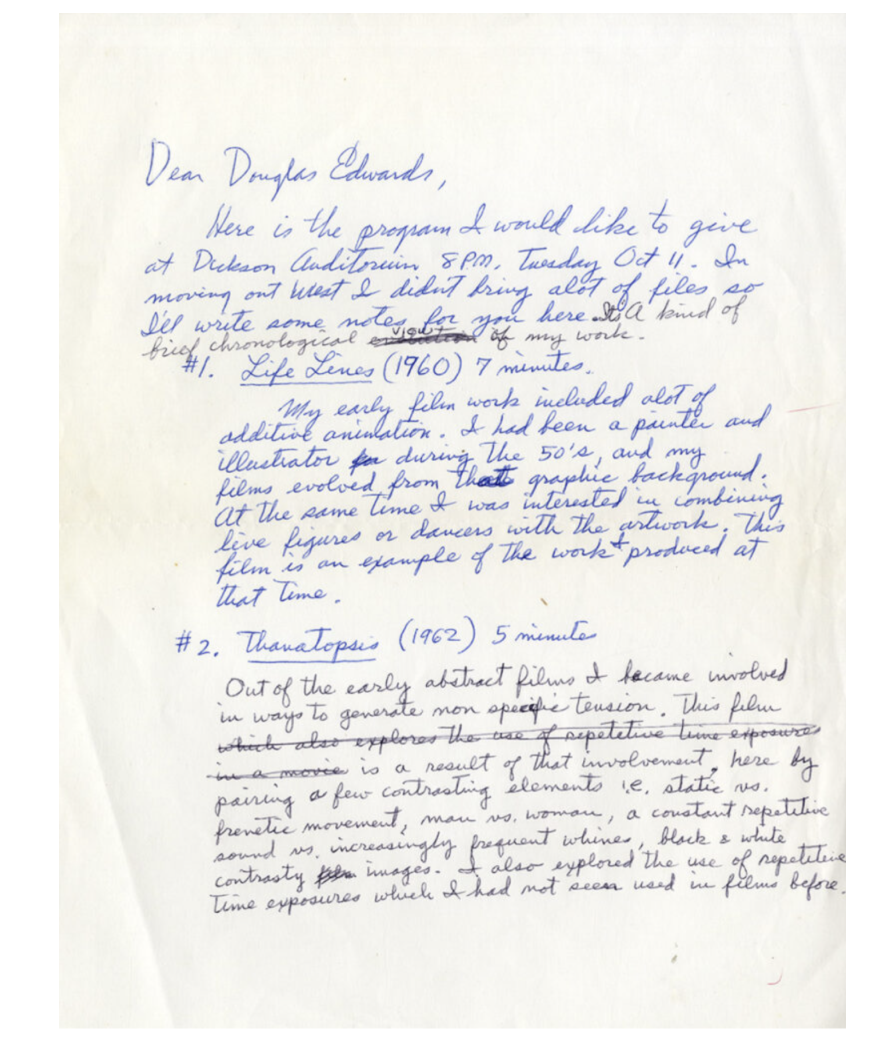 Dear Douglas Edwards,
Here is the program I would like to give
at Dickson Auditorium 8PM, Tuesday Oct 11. In
moving out West I didn't bring alot of files so
I'll write some notes for you here. Its A kind of
brief chronological view of my work.
#1. Life Lines (1960) 7 minutes.
My early film work included alot of
additive animation. I had been a painter and
illustrator during the 50's, and my
films evolved from that graphic background.
At the same time I was interested in combining
live figures or dancers with the artwork. This
film is an example of the work I produced at
that time.
#2. Thanatopsis (1962) 5 minutes
Out of the early abstract films I became involved
in ways to generate non specific tension. This film
which also explores the use of repetetive time exposures
in a movie is a result of that involvement, here by
pairing a few contrasting elements i.e. static vs.
frenetic movement, man vs. woman, a constant repetitive
sound vs. increasingly frequent whines, black & white
contrasty images. I also explored the use of repetitive
time exposures which I had not seen used in films before.